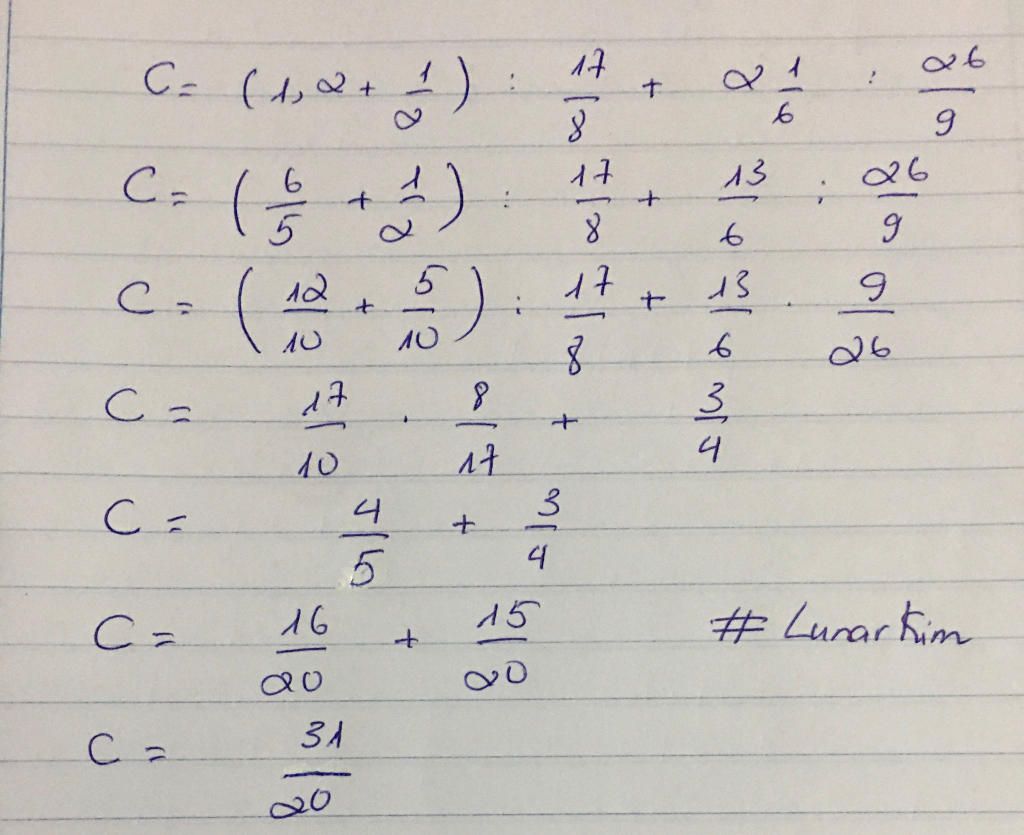 C = (1,2 + 1/2) : 17/8 + 2 1/6 : 26/9
C = (6/5 + 1/2) : 17/8 + 13/6 : 26/9
C = (12/10 + 5/10) : 17/8 + 13/6 . 9/26
C = 17/10 . 8/17 + 3/4
C = 4/5 + 3/4
C = 16/20 + 15/20 # LunarKim
C = 31/20